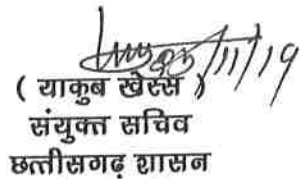 /11/19
( याकुब खेस्स )
संयुक्त सचिव
छत्तीसगढ़ शासन